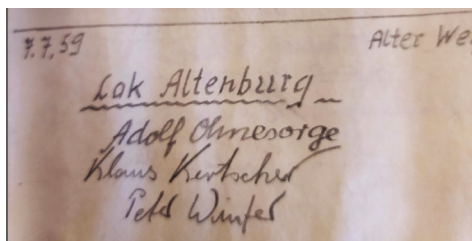 7.7.59 Alter We
Lok Altenburg
Adolf Ohnesorge
Klaus Kertscher
Peter Winter